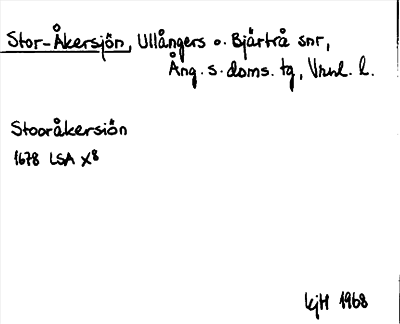 Stor-Åkersjön, Ullångers o. Bjärtrå snr,
Ång. s. doms. tg, Vnnl. l.
Stooråkersiön
1678 LSA X8
kjH 1968